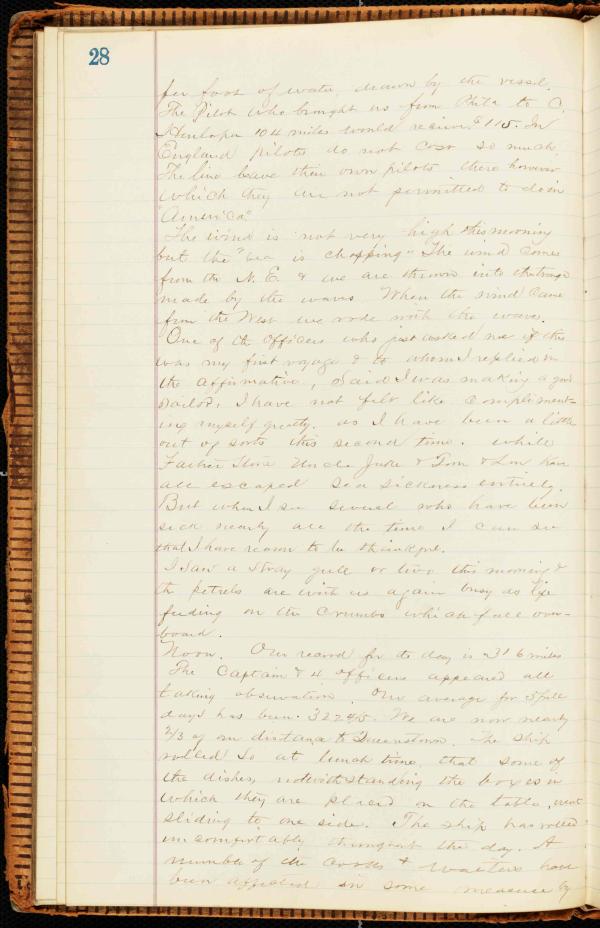 28
per foot of water, drawn by the vessel.
The Pilot who brought us from Phila to C.
Henlopen 104 miles would receive $115. In
England pilots do not cost so much.
The line have their own pilots there however
which they are not permitted to do in
"America."
The wind is not very high this morning
but the "sea is chopping". The wind comes
from the N. E. & we are thrown into the
made by the waves. When the wind came
from the West we rode with the waves.
One of the officers who just asked me if this
was my first voyage & to whom I replied in
the affirmative, said I was making a good
sailor, I have not felt like compliment-
ing myself greatly. as I have been a little
out of sorts this second time. while
Father Uncle & Tom & Lou have
all escaped sea sickness entirely.
But when I see several who have been
sick nearly all the time I can see
that I have reason to be thankful.
I saw a stray gull or two this morning &
the petrels are with us again busy as life
feeding on the crumbs which fall over-
board.
Noon. Our record for the day is 316 miles
The Captain & 4 officers appeared all
taking observation. Our average for 5 full
days has been. We are now nearly
2/3 of our distance to Queenstown. The ship
rolled so at lunch time, that some of
the dishes, notwithstanding the boxes in
which they are placed on the table, went
sliding to one side. The ship has rolled
uncomfortably throughout the day. A
number of the cooks & waiters have
been affected in some measure by